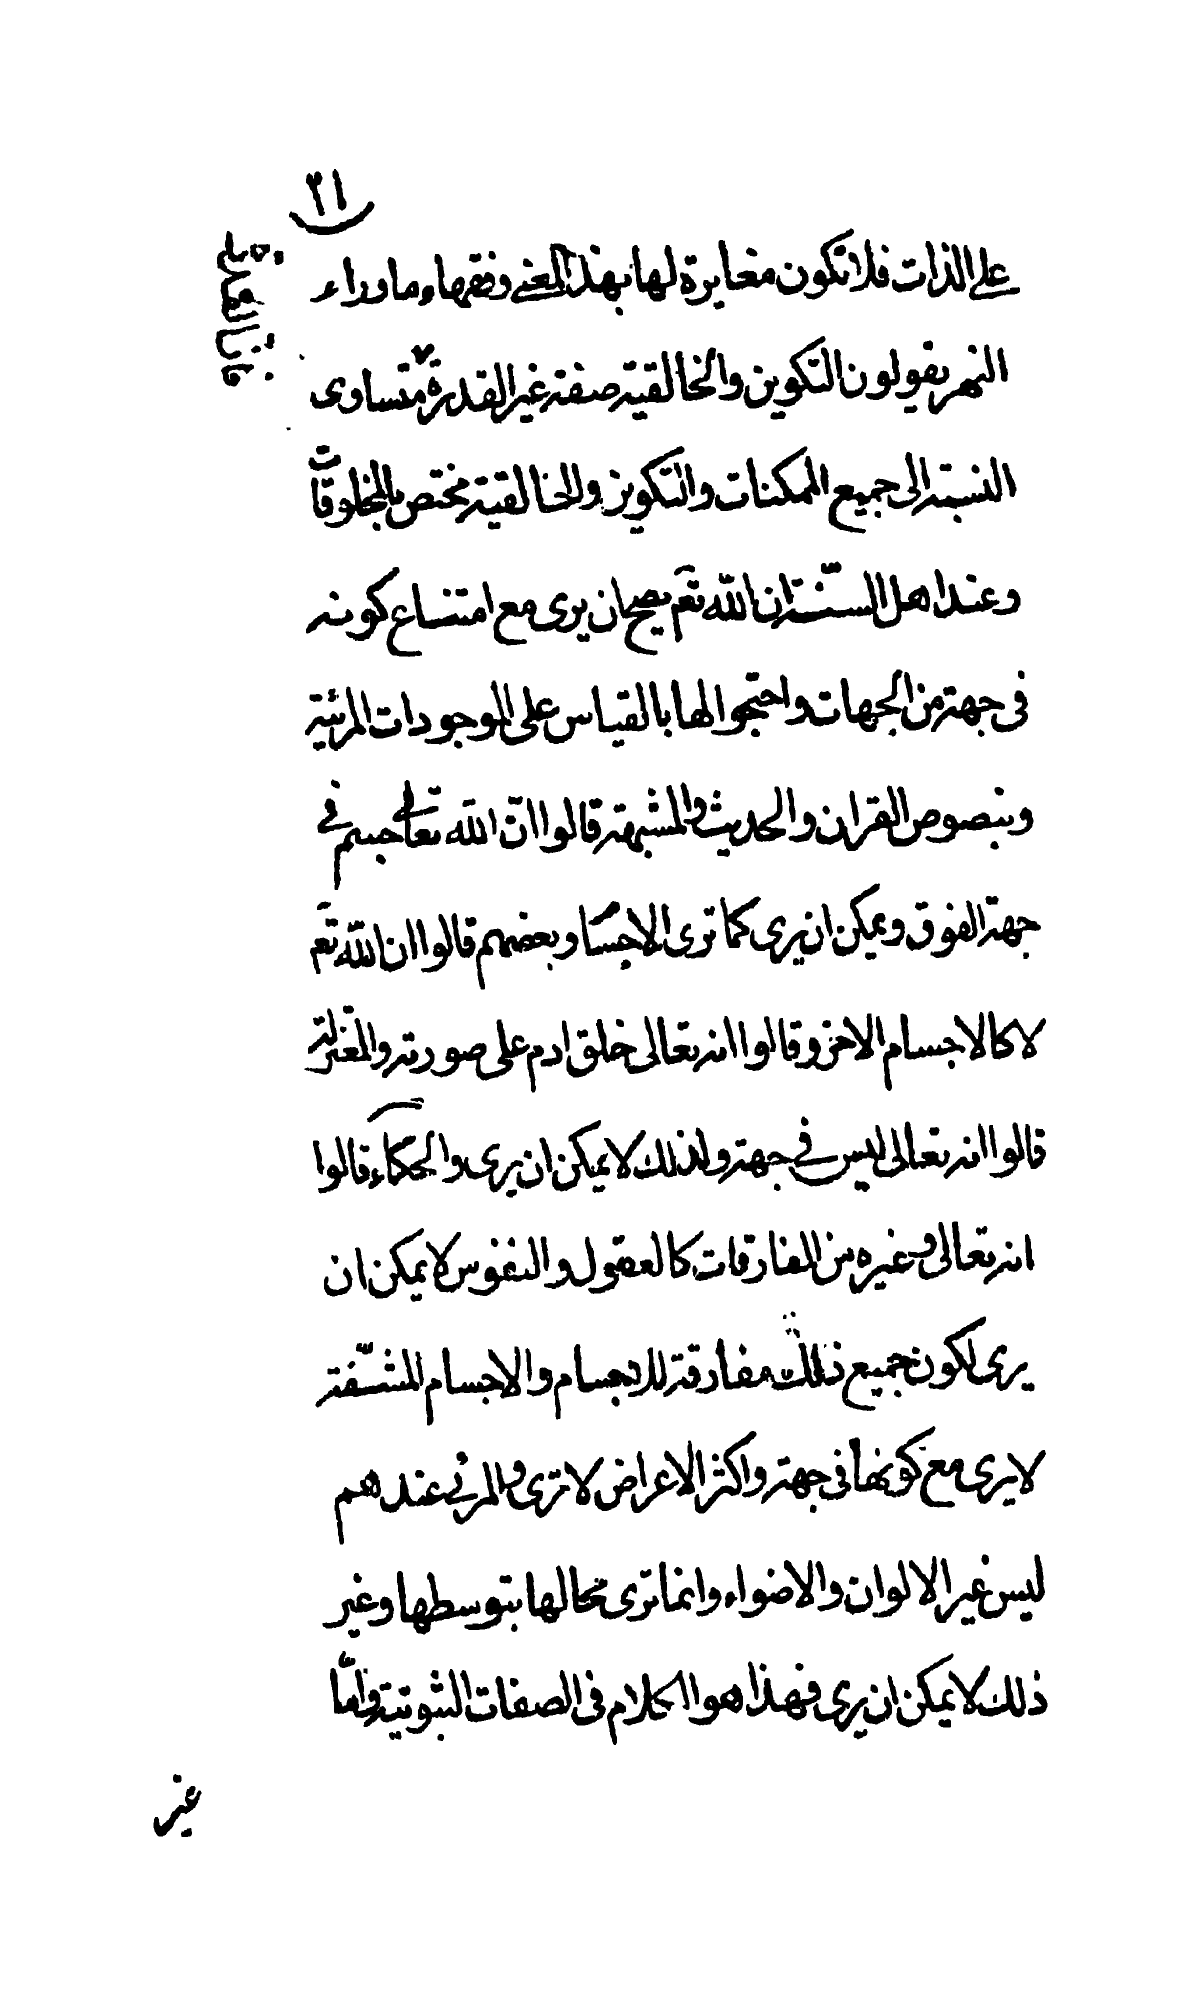 ٢١
على الذات فلا تكون مغايرة لها بهذا المعنى وفقهاء ماوراء
النهر يقولون التكوين والخالقية صفة غير القدرة متساوى
النسبة الى جميع الممكنات والتكوين والخالقية مختص بالمخلوقات
وعند اهل السنّة ان اللّه تعم يصح ان يرى مع امتناع كونه
فى جهة من الجهات واحتجوا لها بالقياس على الموجودات المرئية
وبنصوص القران والحديث والمشبهة قالوا انّ اللّه تعالى جسم فى
جهة الفوق ويمكن ان يرى كما ترى الاجسام وبعضهم قالوا ان اللّه تعم
لا كالاجسام الاخر وقالوا انه تعالى خلق ادم على صورته والمعتزلة
قالوا انه تعالى ليس فى جهة ولذلك لا يمكن ان يرى والحكماء قالوا
انه تعالى وغيره من المفارقات كالعقول والنفوس لا يمكن ان
يرى لكون جميع ذلك مفارقة للاجسام والاجسام المشّفة
لا يرى مع كونها فى جهة واكثر الاعراض لا ترى والمرئى عندهم
ليس غير الالوان والاضواء وانما ترى محالها بتوسطها وغير
ذلك لا يمكن ان يرى فهذا هو الكلام فى الصفات الثبوتية وامّا
غير